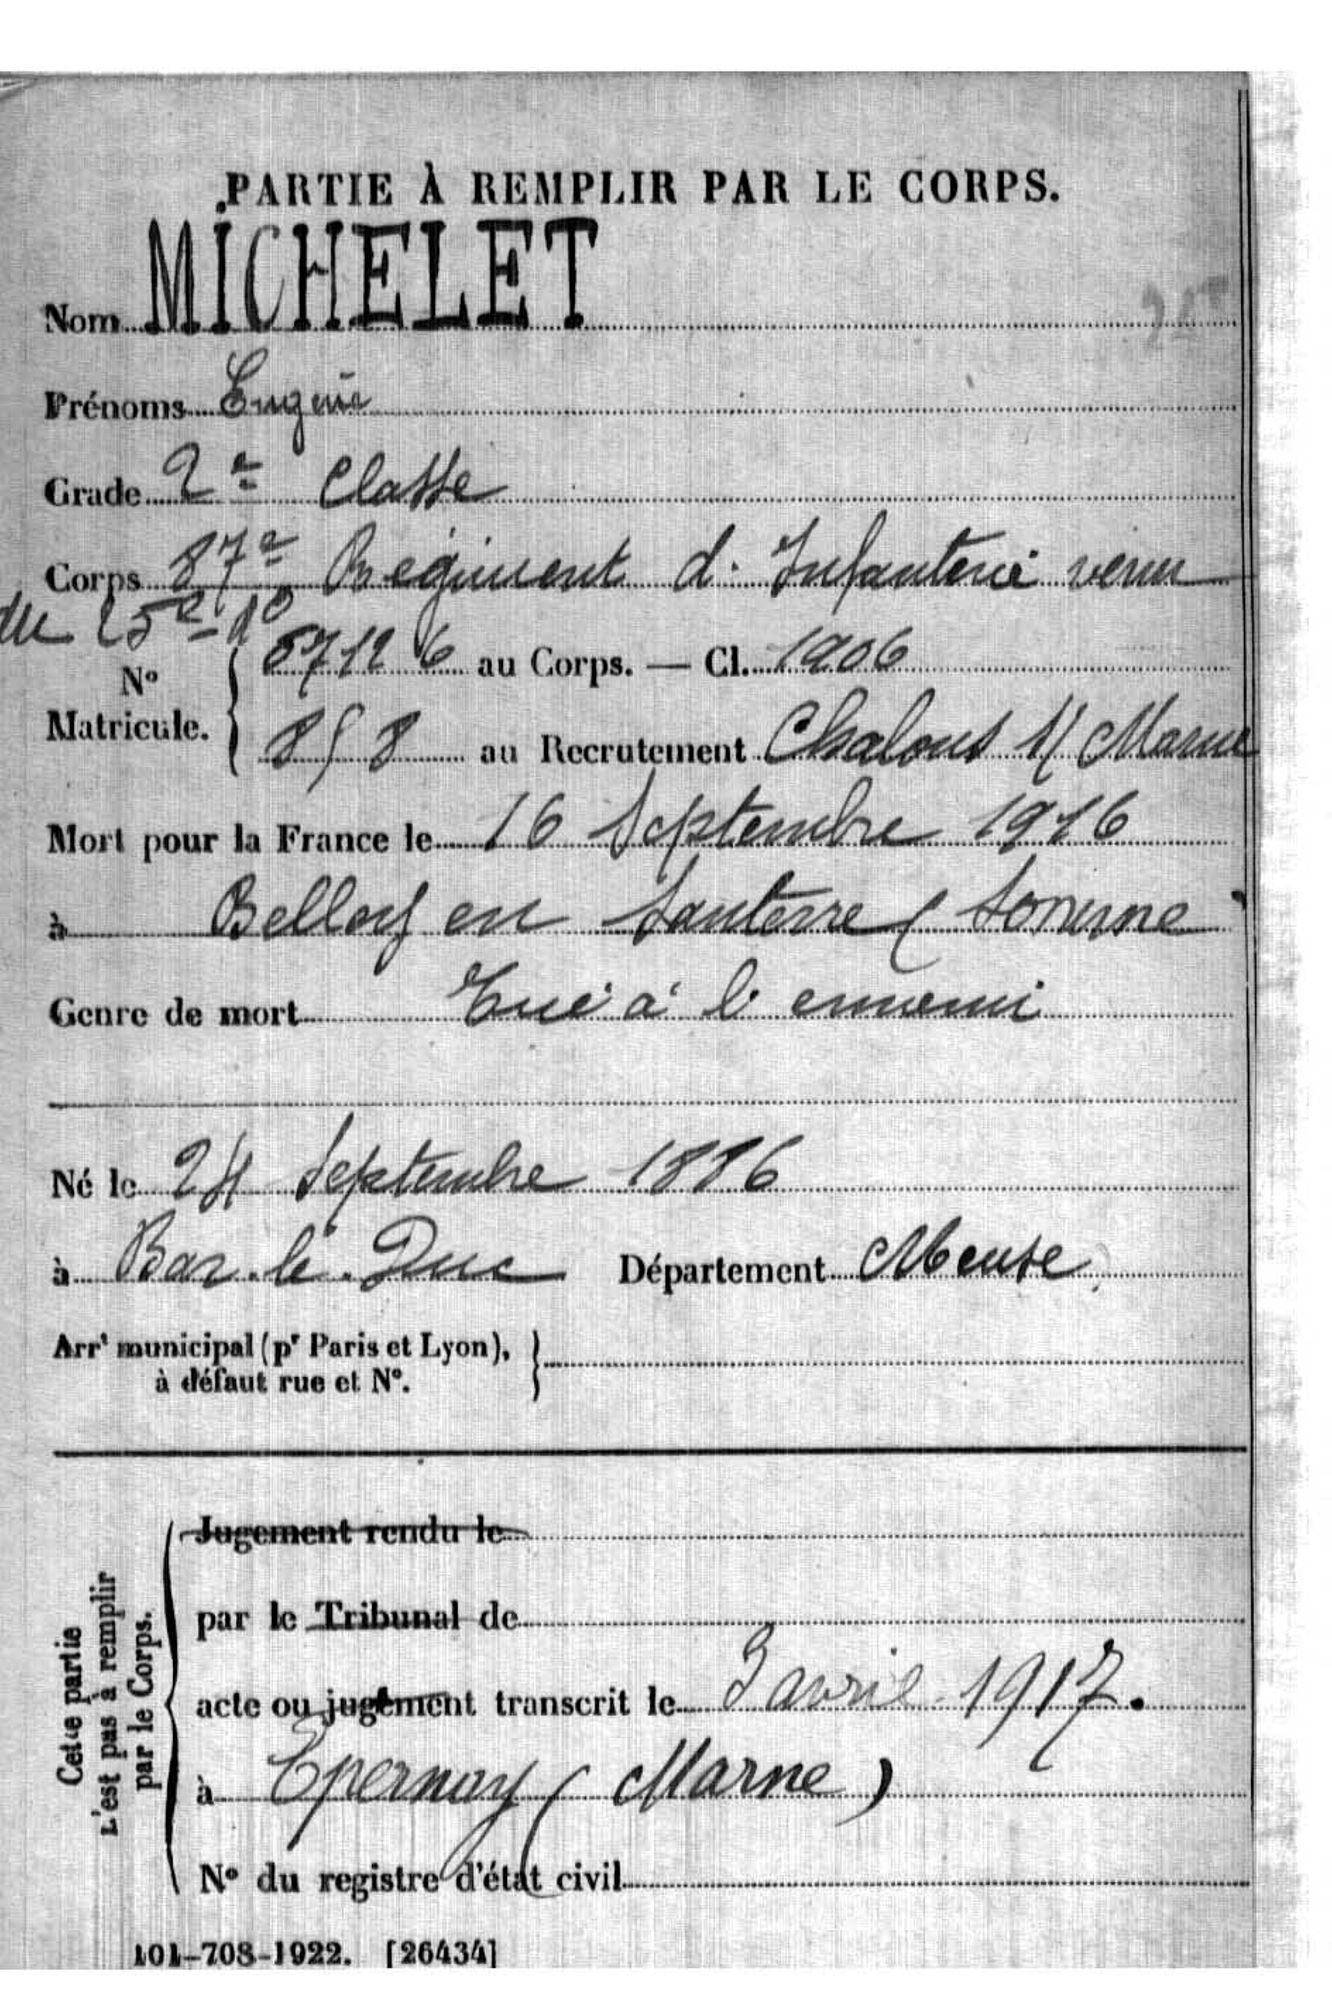 PARTIE À REMPLIR PAR LE CORPS.
Nom MICHELET
Prénoms Eugène
Grade 2e Classe
Corps 87e Régiment d'Infanterie venu
du 25e do
No Matricule. 
5712 6 au Corps. — Cl. 1906
858 au Recrutement Chalons s/ Marne
Mort pour la France le 16 Septembre 1916
à Belloy en Santerre (Somme
Genre de mort Tué à l'ennemi
Né le 24 Septembre 1886
à Bar-le-Duc Département Meuse
Arrt municipal (pr Paris et Lyon),
à défaut rue et No.
Cette partie
L'est pas à remplir
par le Corps.
Jugement rendu le
par le Tribunal de
acte ou jugement transcrit le 3 avril 1917.
à Epernay (Marne)
No du registre d'état civil
101-708-1922. [26434]